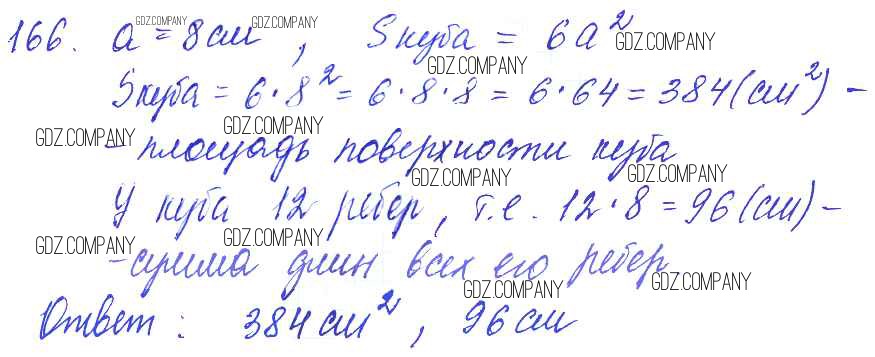 166. a = 8 см, Sкуба = 6a²
Sкуба = 6·8² = 6·8·8 = 6·64 = 384 (см²) –
– площадь поверхности куба
У куба 12 ребер, т.е. 12·8 = 96 (см) –
– сумма длин всех его ребер
Ответ: 384 см², 96 см
GDZ.COMPANY
GDZ.COMPANY
GDZ.COMPANY
GDZ.COMPANY
GDZ.COMPANY
GDZ.COMPANY
GDZ.COMPANY
GDZ.COMPANY
GDZ.COMPANY
GDZ.COMPANY
GDZ.COMPANY
GDZ.COMPANY